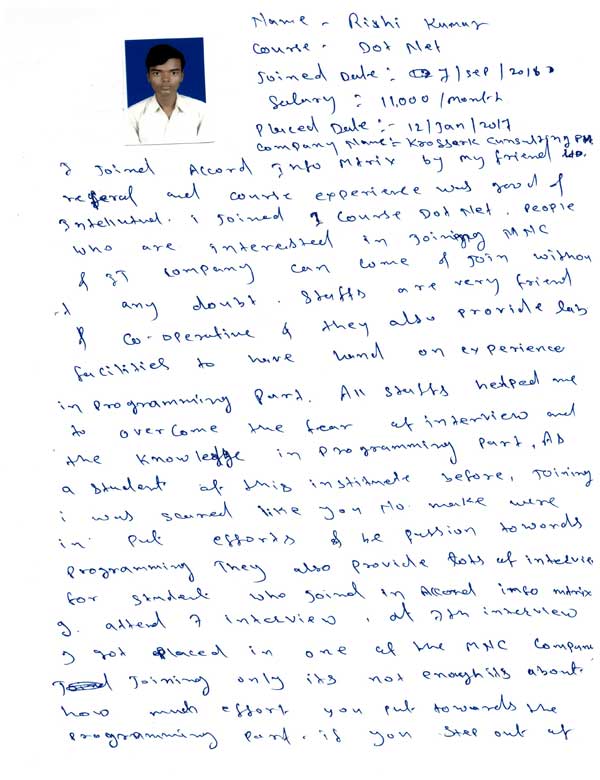 Name - Rishi Kumar
Course - Dot Net
Joined Date :- 7/Sep/2016
Salary :- 11,000 /month
Placed Date :- 12/Jan/2017
Company Name :- Krossark Cunsulting Pvt
I Joined Accord Info Mtrix by my friend Ltd.
referal and course experience was good &
Intellutual. i joined Course Dot Net. People
who are interested in Joining MNC
& IT company can come & Join withou
-t any doubt. Staffs are very friend
& co-operative & they also provide lab
facilities to have hand on experience
in programming Part. All staffs helped me
to overcome the fear of interview and
the knowledge in programming Part, As
a student of this institute before, Joining
i was scared like you No. make were
in put efforts & be passion towards
Programming They also provide lots of intelvie
for student who Joind in Accord info mtrix
I. attend 7 interview, at 7th interview
I got placed in one of the MNC Compan
Joining only its not enoghits about
how much effort you put towards the
programming Part. if you step out of